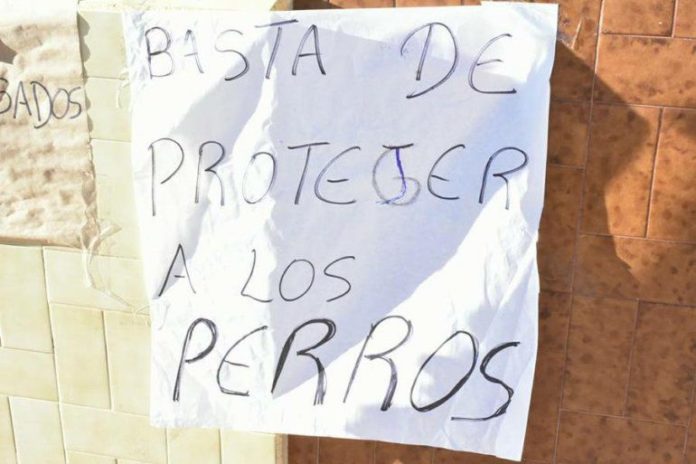 BADOS
BASTA DE
PROTEJER
A LOS
PERROS